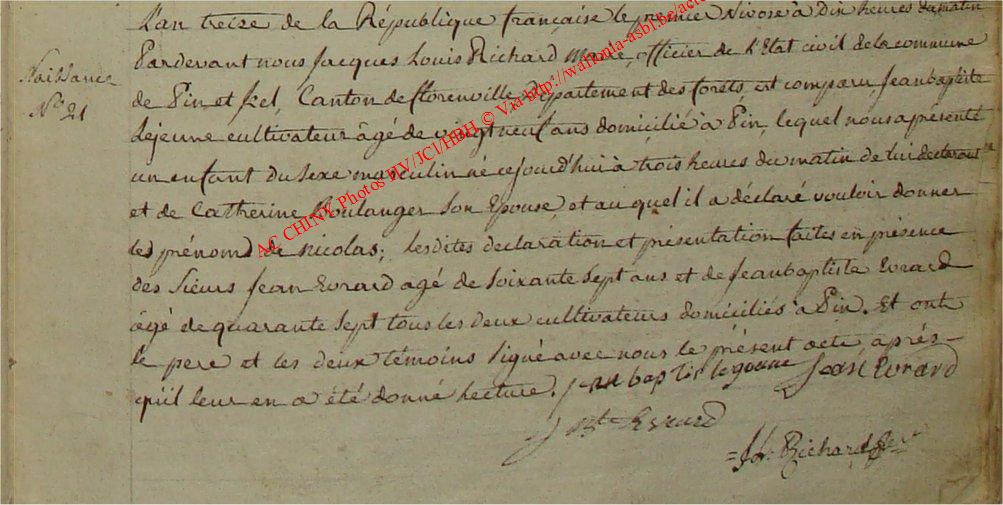 Naissance
No 21
L'an treize de la République française le premier Nivose à Dix heures du matin
Pardevant nous Jacques Louis Richard Maire, officier de l'Etat civil de la commune
de Pin et Izel, Canton de florenville Département des forêts est comparu, Jeanbaptiste
Lejeune cultivateur âgé de vingt neuf ans domicilié à Pin, lequel nous a présenté
un enfant du sexe masculin né cejourd'hui à trois heures du matin de lui declarant
et de Catherine Boulanger Son Epouse, et au quel il a déclaré vouloir donner
les prénoms de Nicolas; lesdites declaration et présentation faites en présence
des Sieurs Jean Evrard agé de Soixante Sept ans et de Jeanbaptiste Evrard
âgé de quarante Sept tous les deux cultivateurs domiciliés à Pin. Et ont
le pere et les deux témoins Signé avec nous le présent acte après
qu'il leur en a été donné lecture. Jean baptis legeune Jean Evrard
J Bt Evrard
Richard
AC CHINY Photos HV/JCI/HBH © Via http://wallonia-asbl.be/acte